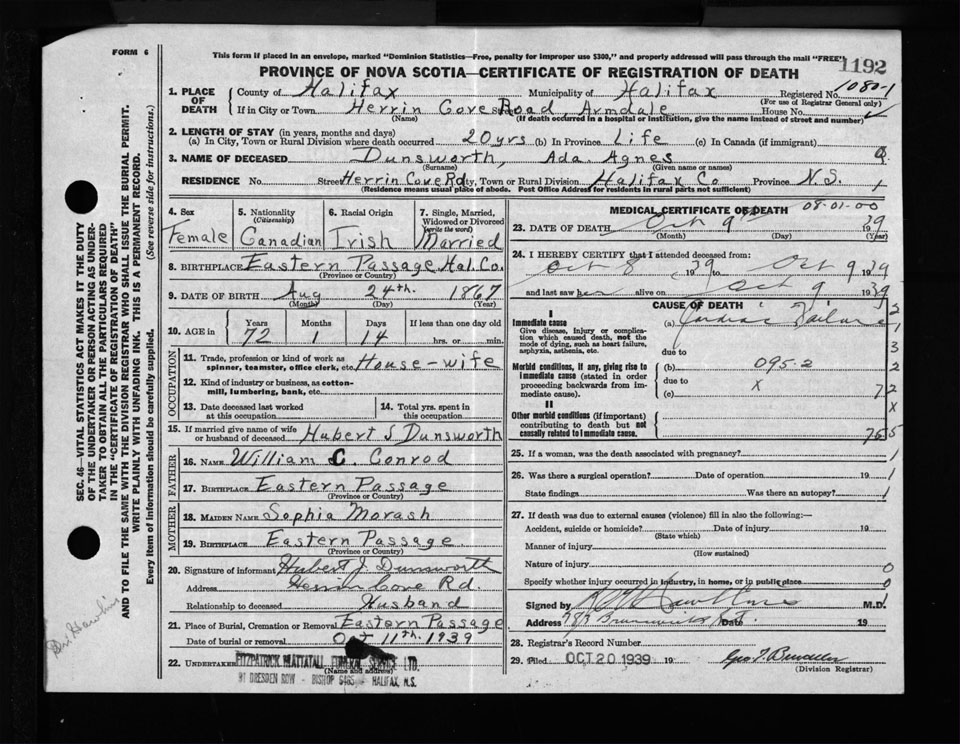 FORM 6
This form if placed in an envelope, marked "Dominion Statistics—Free, penalty for improper use $300," and properly addressed will pass through the mail "FREE"
1192
PROVINCE OF NOVA SCOTIA—CERTIFICATE OF REGISTRATION OF DEATH
1. PLACE OF DEATH
County of Halifax Municipality of Halifax Registered No. 1080-1
(For use of Registrar General only)
If in City or Town Herrin Cove Road, Armdale House No.
(Name) (If death occurred in a hospital or institution, give the name instead of street and number)
2. LENGTH OF STAY (in years, months and days)
(a) In City, Town or Rural Division where death occurred 20 yrs (b) In Province Life (c) In Canada (if immigrant)
3. NAME OF DECEASED Dunsworth, Ada. Agnes
(Surname) (Given name or names)
RESIDENCE No. Street Herrin Cove Rd City, Town or Rural Division Halifax Co Province N.S.
(Residence means usual place of abode. Post Office Address for residents in rural parts not sufficient)
4. Sex Female
5. Nationality (Citizenship) Canadian
6. Racial Origin Irish
7. Single, Married, Widowed or Divorced (write the word) Married
8. BIRTHPLACE Eastern Passage, Hal. Co.
(Province or Country)
9. DATE OF BIRTH Aug 24th. 1867
(Month) (Day) (Year)
10. AGE in Years 72 Months 1 Days 14 If less than one day old hrs. or min.
OCCUPATION
11. Trade, profession or kind of work as spinner, teamster, office clerk, etc. House-wife
12. Kind of industry or business, as cotton-mill, lumbering, bank, etc.
13. Date deceased last worked at this occupation
14. Total yrs. spent in this occupation
15. If married give name of wife or husband of deceased Hubert J Dunsworth
FATHER
16. NAME William C. Conrod
17. BIRTHPLACE Eastern Passage
(Province or Country)
MOTHER
18. MAIDEN NAME Sophia Morash
19. BIRTHPLACE Eastern Passage
(Province or Country)
20. Signature of informant Hubert J. Dunsworth
Address Herrin Cove Rd.
Relationship to deceased Husband
21. Place of Burial, Cremation or Removal Eastern Passage
Date of burial or removal Oct 11th. 1939
22. UNDERTAKER FITZPATRICK MATTATALL FUNERAL SERVICE LTD.
(Name and address)
91 DRESDEN ROW - BISHOP 6465 - HALIFAX, N.S.
MEDICAL CERTIFICATE OF DEATH 08-01-00
23. DATE OF DEATH Oct 9th 1939
(Month) (Day) (Year)
24. I HEREBY CERTIFY that I attended deceased from:
Oct 8 1939 to Oct 9 1939
and last saw her alive on Oct 9 1939
CAUSE OF DEATH
I
Immediate cause
Give disease, injury or complication which caused death, not the mode of dying, such as heart failure, asphyxia, asthenia, etc.
(a) Cardiac Failure
due to
Morbid conditions, if any, giving rise to immediate cause (stated in order proceeding backwards from immediate cause).
(b) 095-2
due to x
(c) 72
II
Other morbid conditions (if important) contributing to death but not causally related to immediate cause.
765
25. If a woman, was the death associated with pregnancy?
26. Was there a surgical operation? Date of operation 19
State findings Was there an autopsy?
27. If death was due to external causes (violence) fill in also the following:—
Accident, suicide or homicide? Date of injury 19
(State which)
Manner of injury
(How sustained)
Nature of injury 0
Specify whether injury occurred in industry, in home, or in public place 0
Signed by M.D.
Address Brunswick St. Date 19
28. Registrar's Record Number
29. Filed OCT 20 1939 19
(Division Registrar)
SEC. 46—VITAL STATISTICS ACT MAKES IT THE DUTY OF THE UNDERTAKER OR PERSON ACTING AS UNDERTAKER TO OBTAIN ALL THE PARTICULARS REQUIRED IN THE "CERTIFICATE OF REGISTRATION OF DEATH" AND TO FILE THE SAME WITH THE DIVISION REGISTRAR WHO SHALL ISSUE THE BURIAL PERMIT.
WRITE PLAINLY WITH UNFADING INK. THIS IS A PERMANENT RECORD.
Every item of information should be carefully supplied. (See reverse side for instructions.)